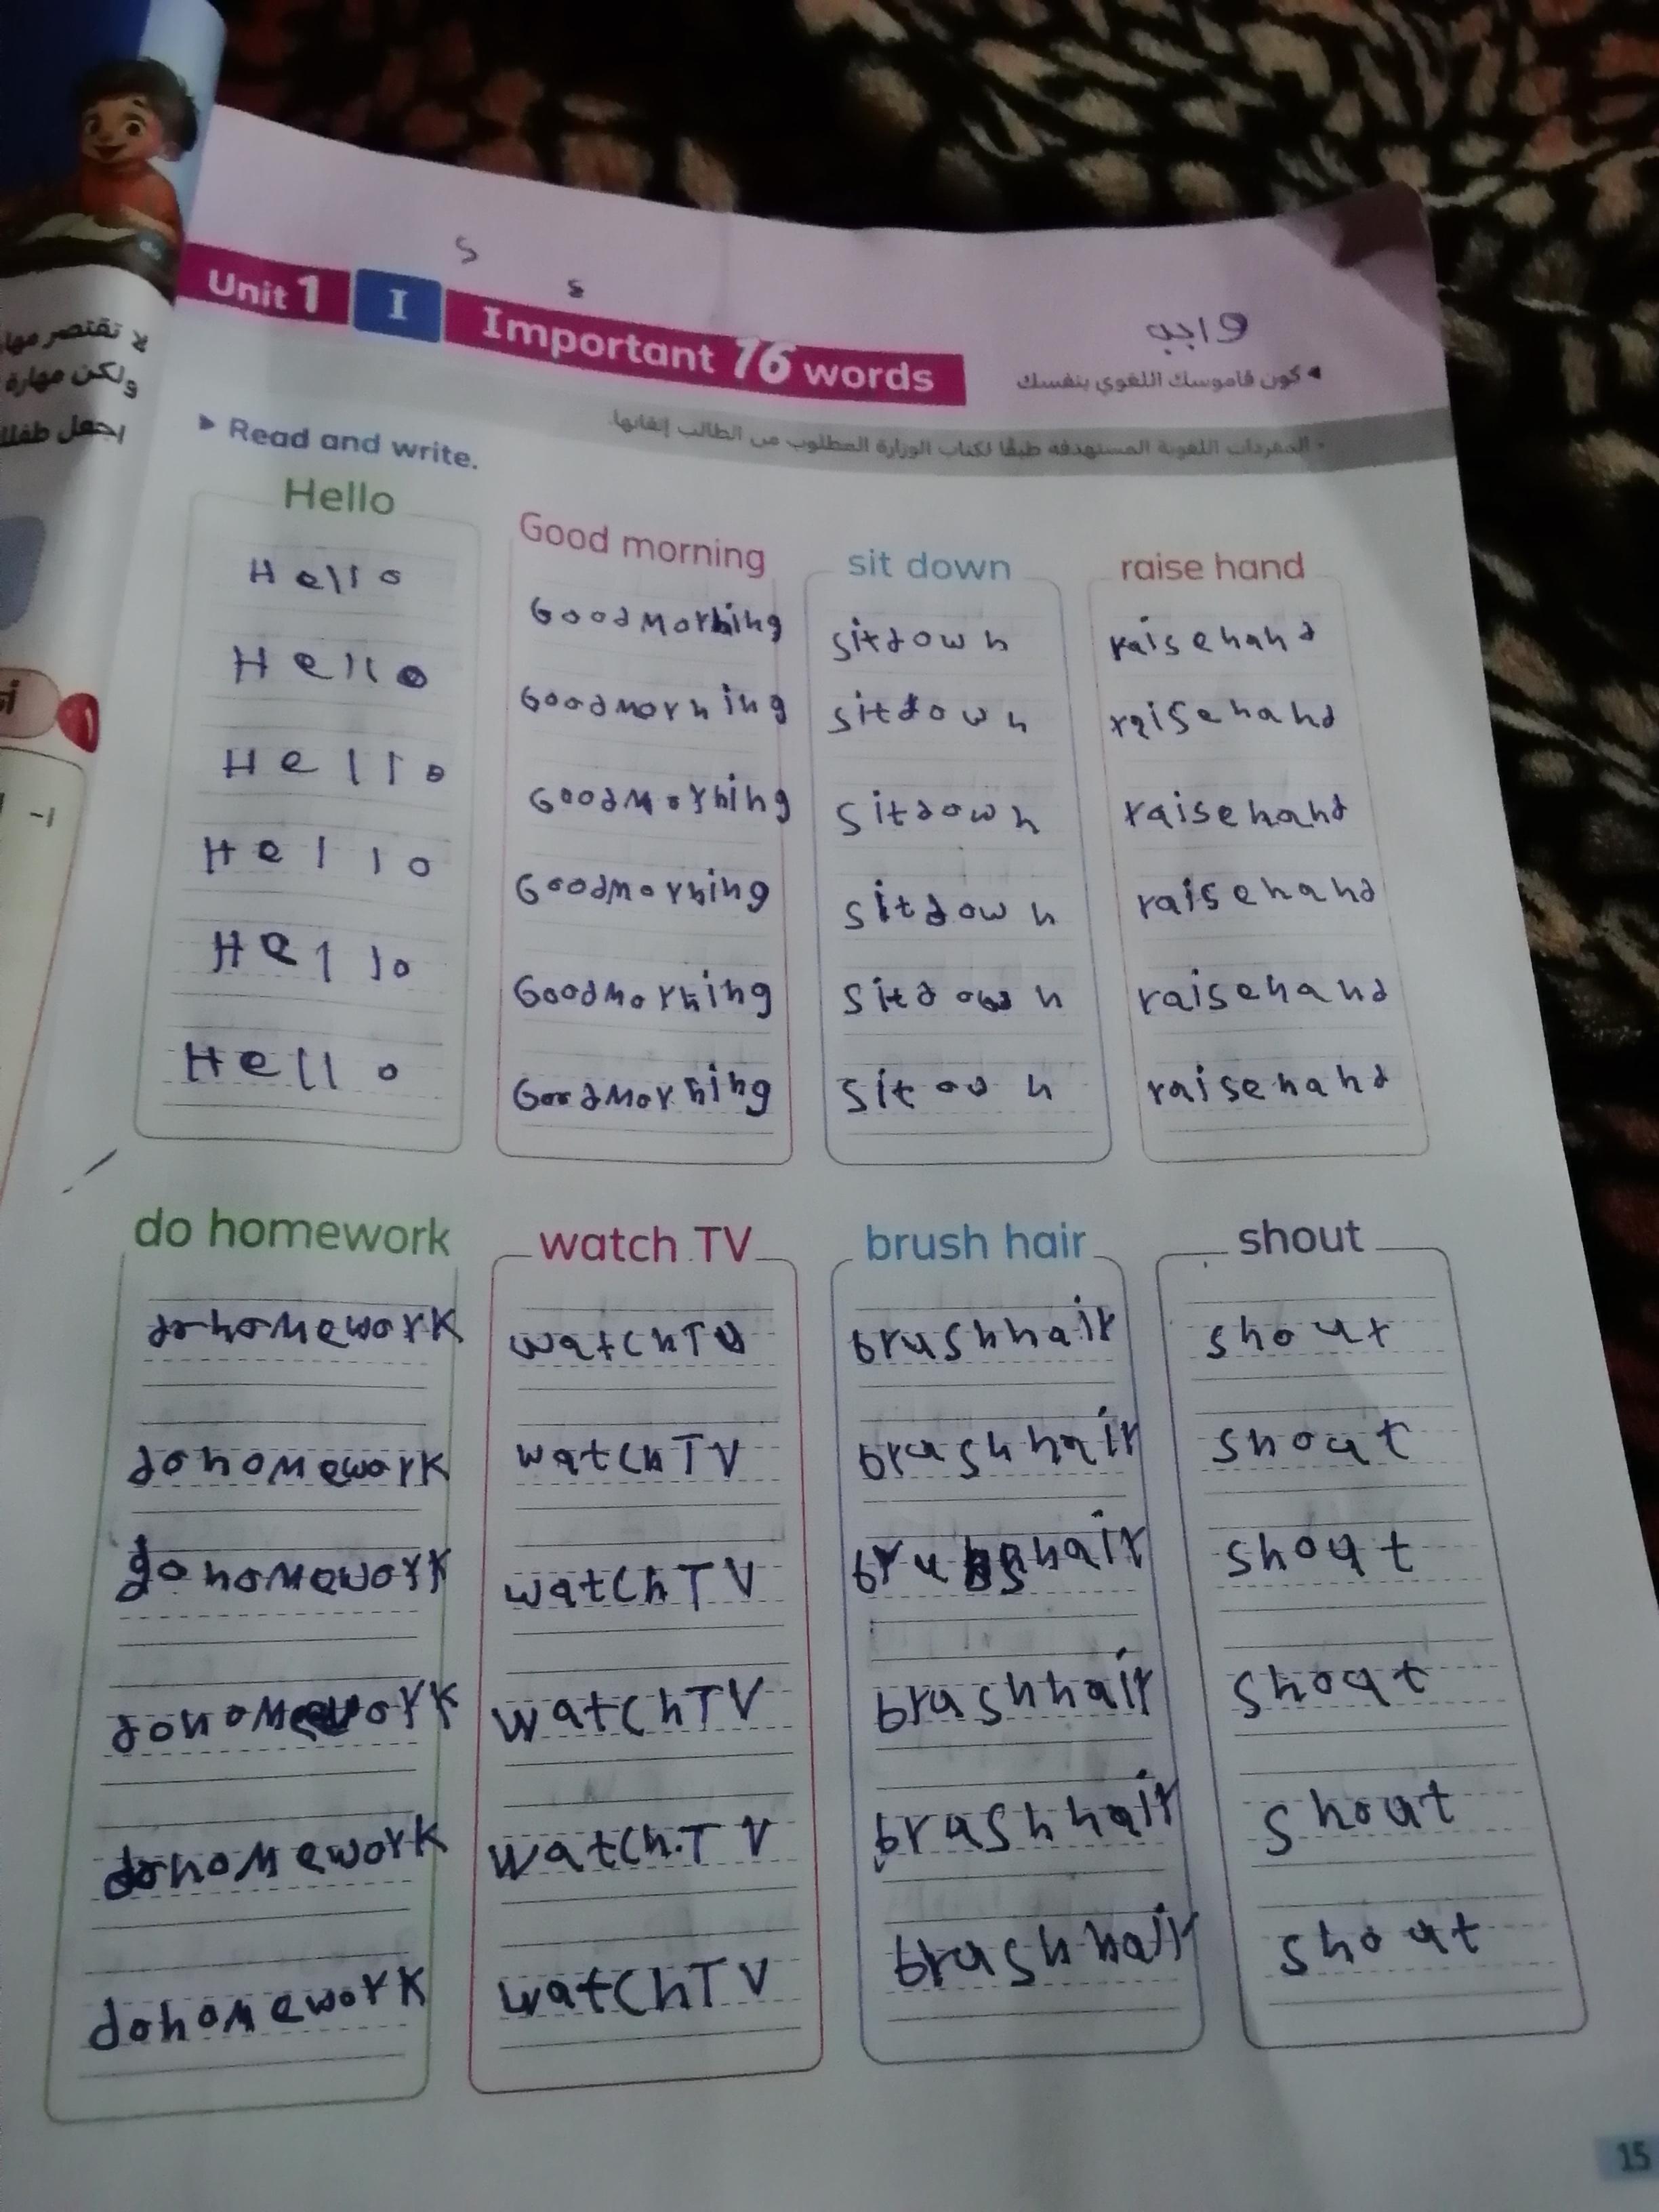 لا تقتصر مها
ولكن مهارة
اجعل طفلك
s
s
واجب
Unit 1 I Important 16 words
كون قاموسك اللغوي بنفسك
- المفردات اللغوية المستهدفة طبقًا لكتاب الوزارة المطلوب من الطالب إتقانها.
Read and write.
Hello
Hello
Hello
Hello
Hello
Hello
Hello
Good morning
Goodmorning
Goodmorning
Goodmorning
Goodmorning
Goodmorning
Goodmorning
sit down
sitdown
sitdown
sitdown
sitdown
sitdown
sit own
raise hand
raisehand
raisehand
raisehand
raisehand
raisehand
raisehand
do homework
dohomework
dohomework
dohomework
dohomework
dohomework
dohomework
watch TV
watchTV
watchTV
watchTV
watchTV
watch.TV
watchTV
brush hair
brushhair
brushhair
brushhair
brushhair
brushhair
shout
shout
shout
shout
shout
shout
shout
15